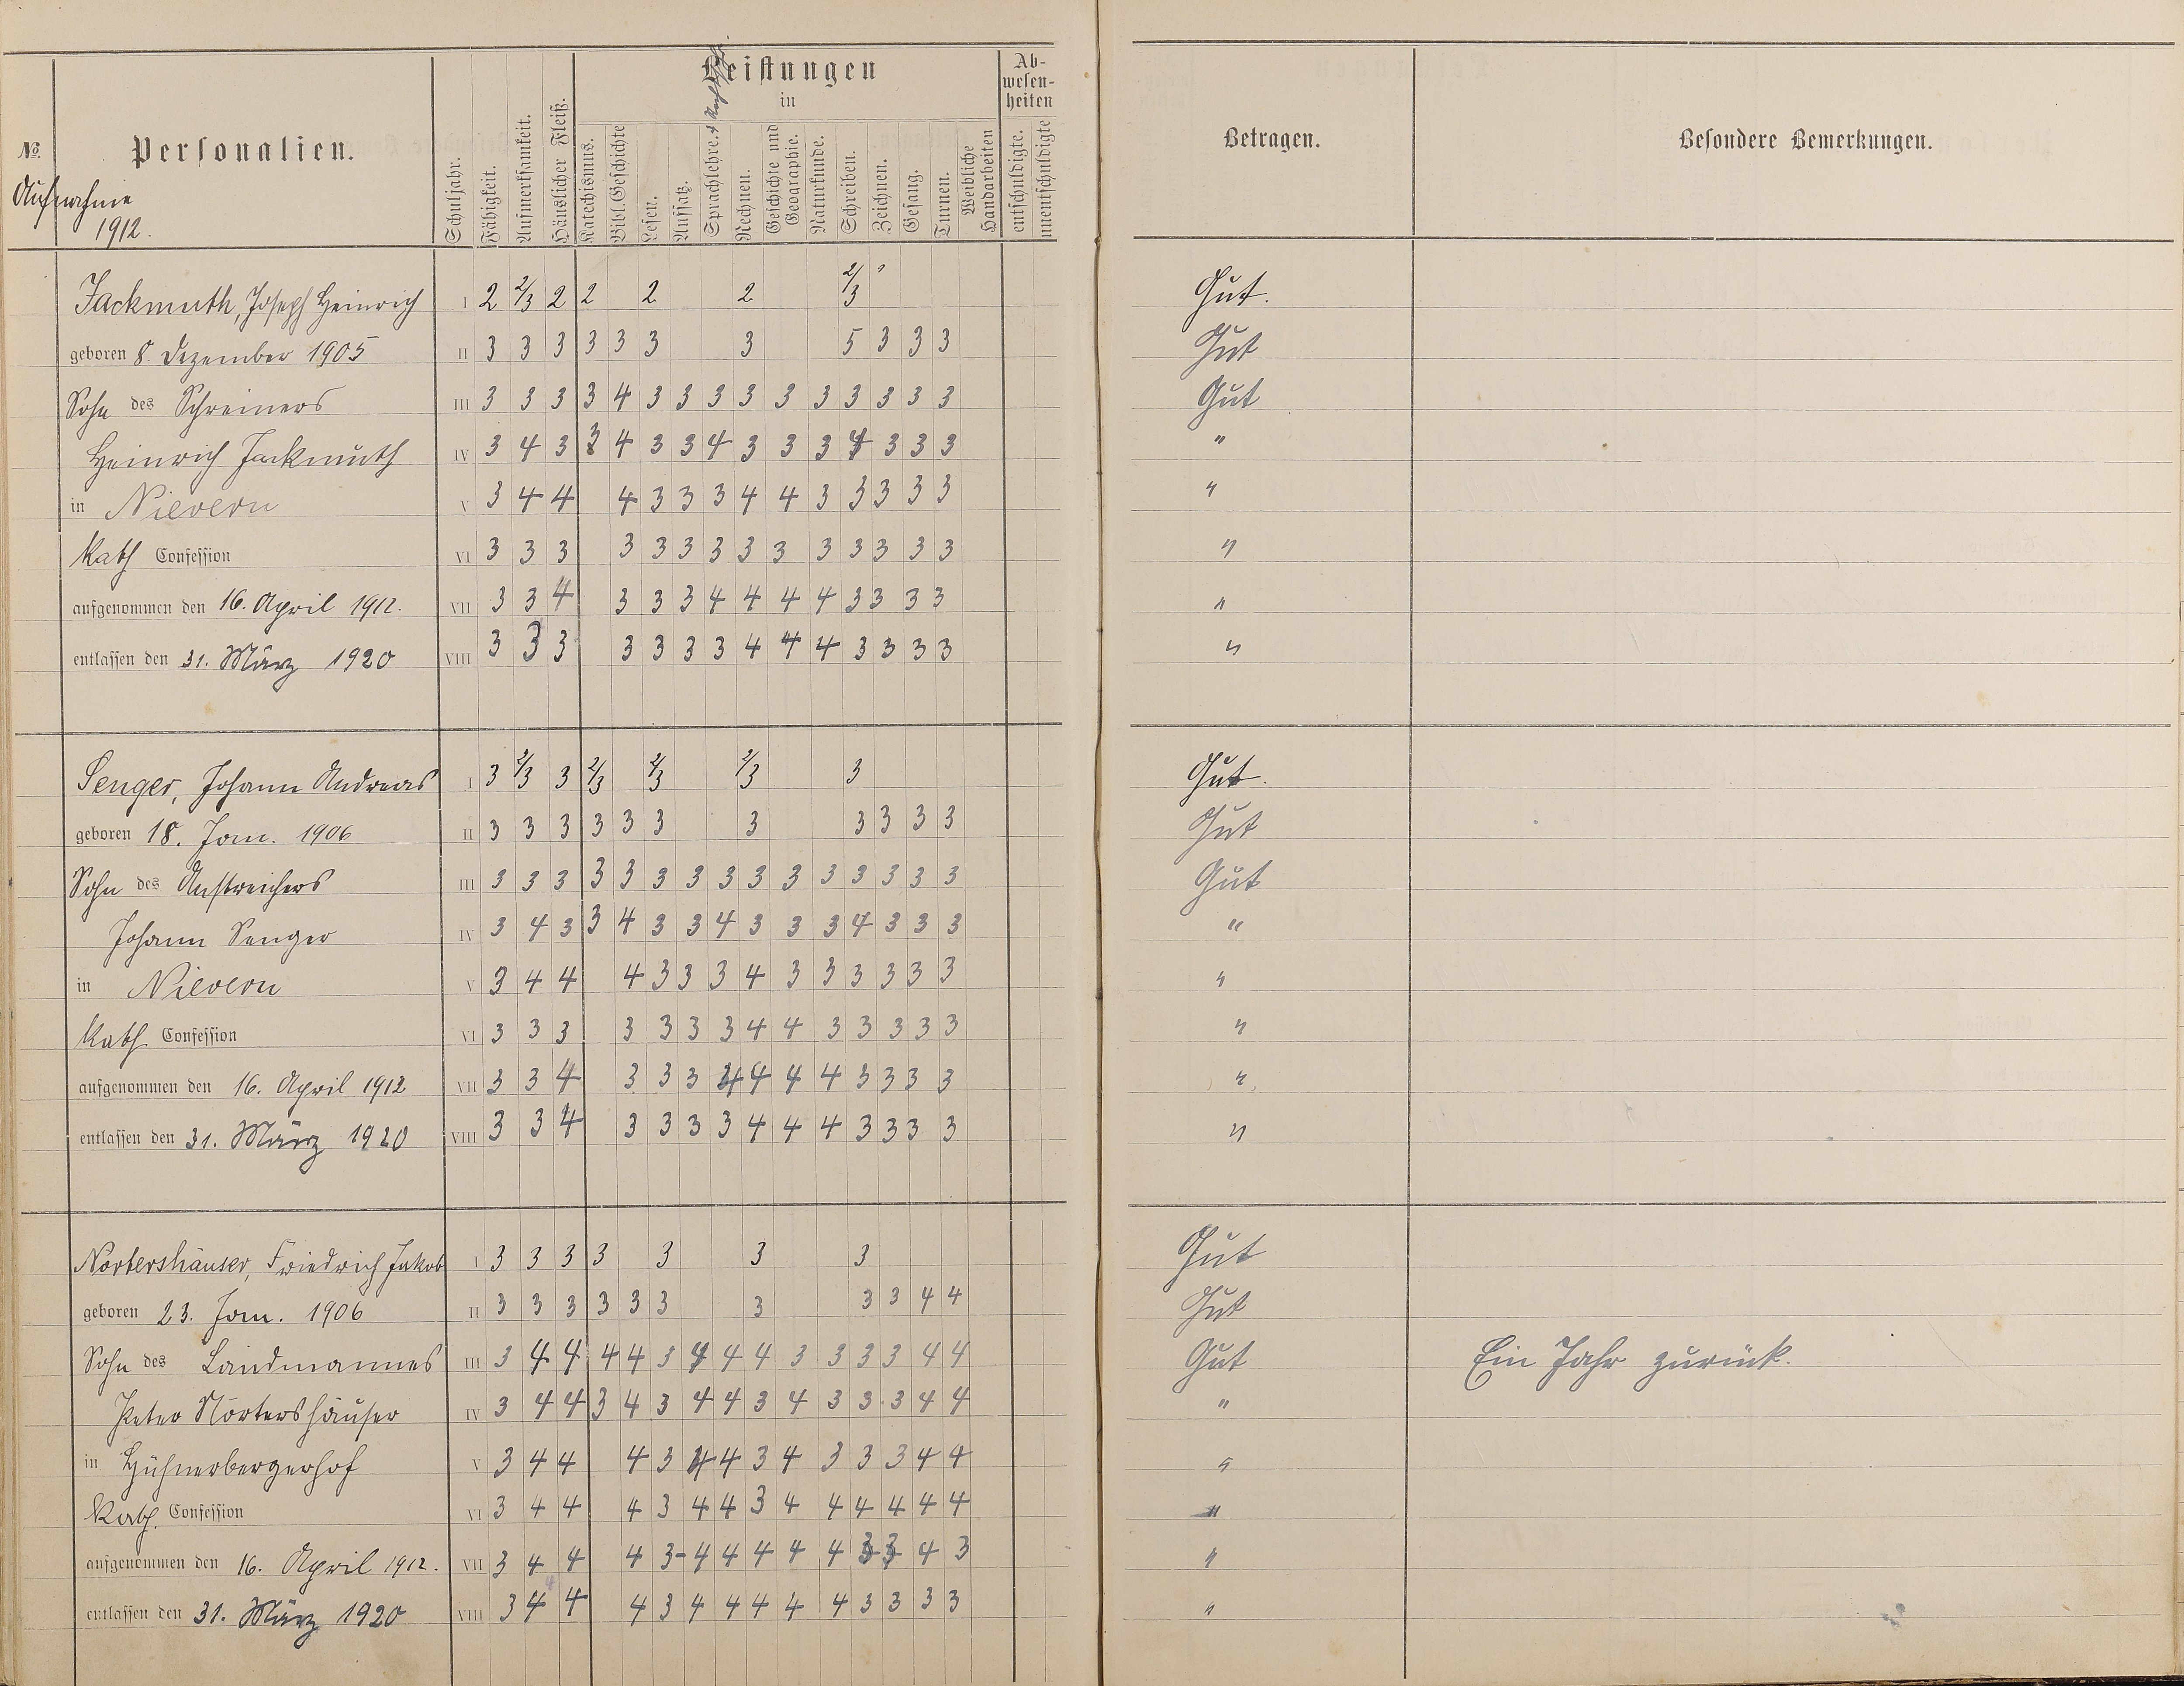 Leistungen
in
Ab-
wesen-
heiten
№.
Personalien.
Aufnahme
1912.
Schuljahr.
Fähigkeit.
Aufmerksamkeit.
Häuslicher Fleiß.
Katechismus.
Bibl. Geschichte
Lesen.
Aufsatz.
Sprachlehre.
Rechnen.
Geschichte und
Geographie.
Naturkunde.
Schreiben.
Zeichnen.
Gesang.
Turnen.
Weibliche
Handarbeiten
entschuldigte.
unentschuldigte
Betragen.
Besondere Bemerkungen.
Jackmuth, Joseph Heinrich I 2 2/3 2 2 2 2 2/3 Gut.
geboren 8. Dezember 1905 II 3 3 3 3 3 3 3 5 3 3 3 Gut
Sohn des Schreiners III 3 3 3 3 4 3 3 3 3 3 3 3 3 3 3 Gut
Heinrich Jackmuth IV 3 4 3 3 4 3 3 4 3 3 3 4 3 3 3 "
in Nievern V 3 4 4 4 3 3 3 4 4 3 3 3 3 3 "
Kath Confession VI 3 3 3 3 3 3 3 3 3 3 3 3 3 3 "
aufgenommen den 16. April 1912. VII 3 3 4 3 3 3 4 4 4 4 3 3 3 3 "
entlassen den 31. März 1920 VIII 3 3 3 3 3 3 3 4 4 4 3 3 3 3 "
Senger, Johann Andreas I 3 2/3 3 2/3 2/3 2/3 3 Gut.
geboren 18. Jan. 1906 II 3 3 3 3 3 3 3 3 3 3 3 Gut
Sohn des Anstreichers III 3 3 3 3 3 3 3 3 3 3 3 3 3 3 3 Gut
Johann Senger IV 3 4 3 3 4 3 3 4 3 3 3 4 3 3 3 "
in Nievern V 3 4 4 4 3 3 3 4 3 3 3 3 3 3 "
Kath. Confession VI 3 3 3 3 3 3 3 4 4 3 3 3 3 3 "
aufgenommen den 16. April 1912 VII 3 3 4 3 3 3 4 4 4 4 3 3 3 3 "
entlassen den 31. März 1920 VIII 3 3 4 3 3 3 3 4 4 4 3 3 3 3 "
Nörtershäuser, Friedrich Jakob I 3 3 3 3 3 3 3 Gut
geboren 23. Jan. 1906 II 3 3 3 3 3 3 3 3 3 4 4 Gut
Sohn des Landmannes III 3 4 4 4 4 3 4 4 4 3 3 3 3 4 4 Gut Ein Jahr zurück.
Peter Nörtershäuser IV 3 4 4 3 4 3 4 4 3 4 3 3 3 4 4 "
in Hühnerbergerhof V 3 4 4 4 3 4 4 3 4 3 3 3 4 4 "
Kath. Confession VI 3 4 4 4 3 4 4 3 4 4 4 4 4 4 "
aufgenommen den 16. April 1912. VII 3 4 4 4 3- 4 4 4 4 4 3 3 4 3 "
entlassen den 31. März 1920 VIII 3 4 4 4 3 4 4 4 4 4 3 3 3 3 "